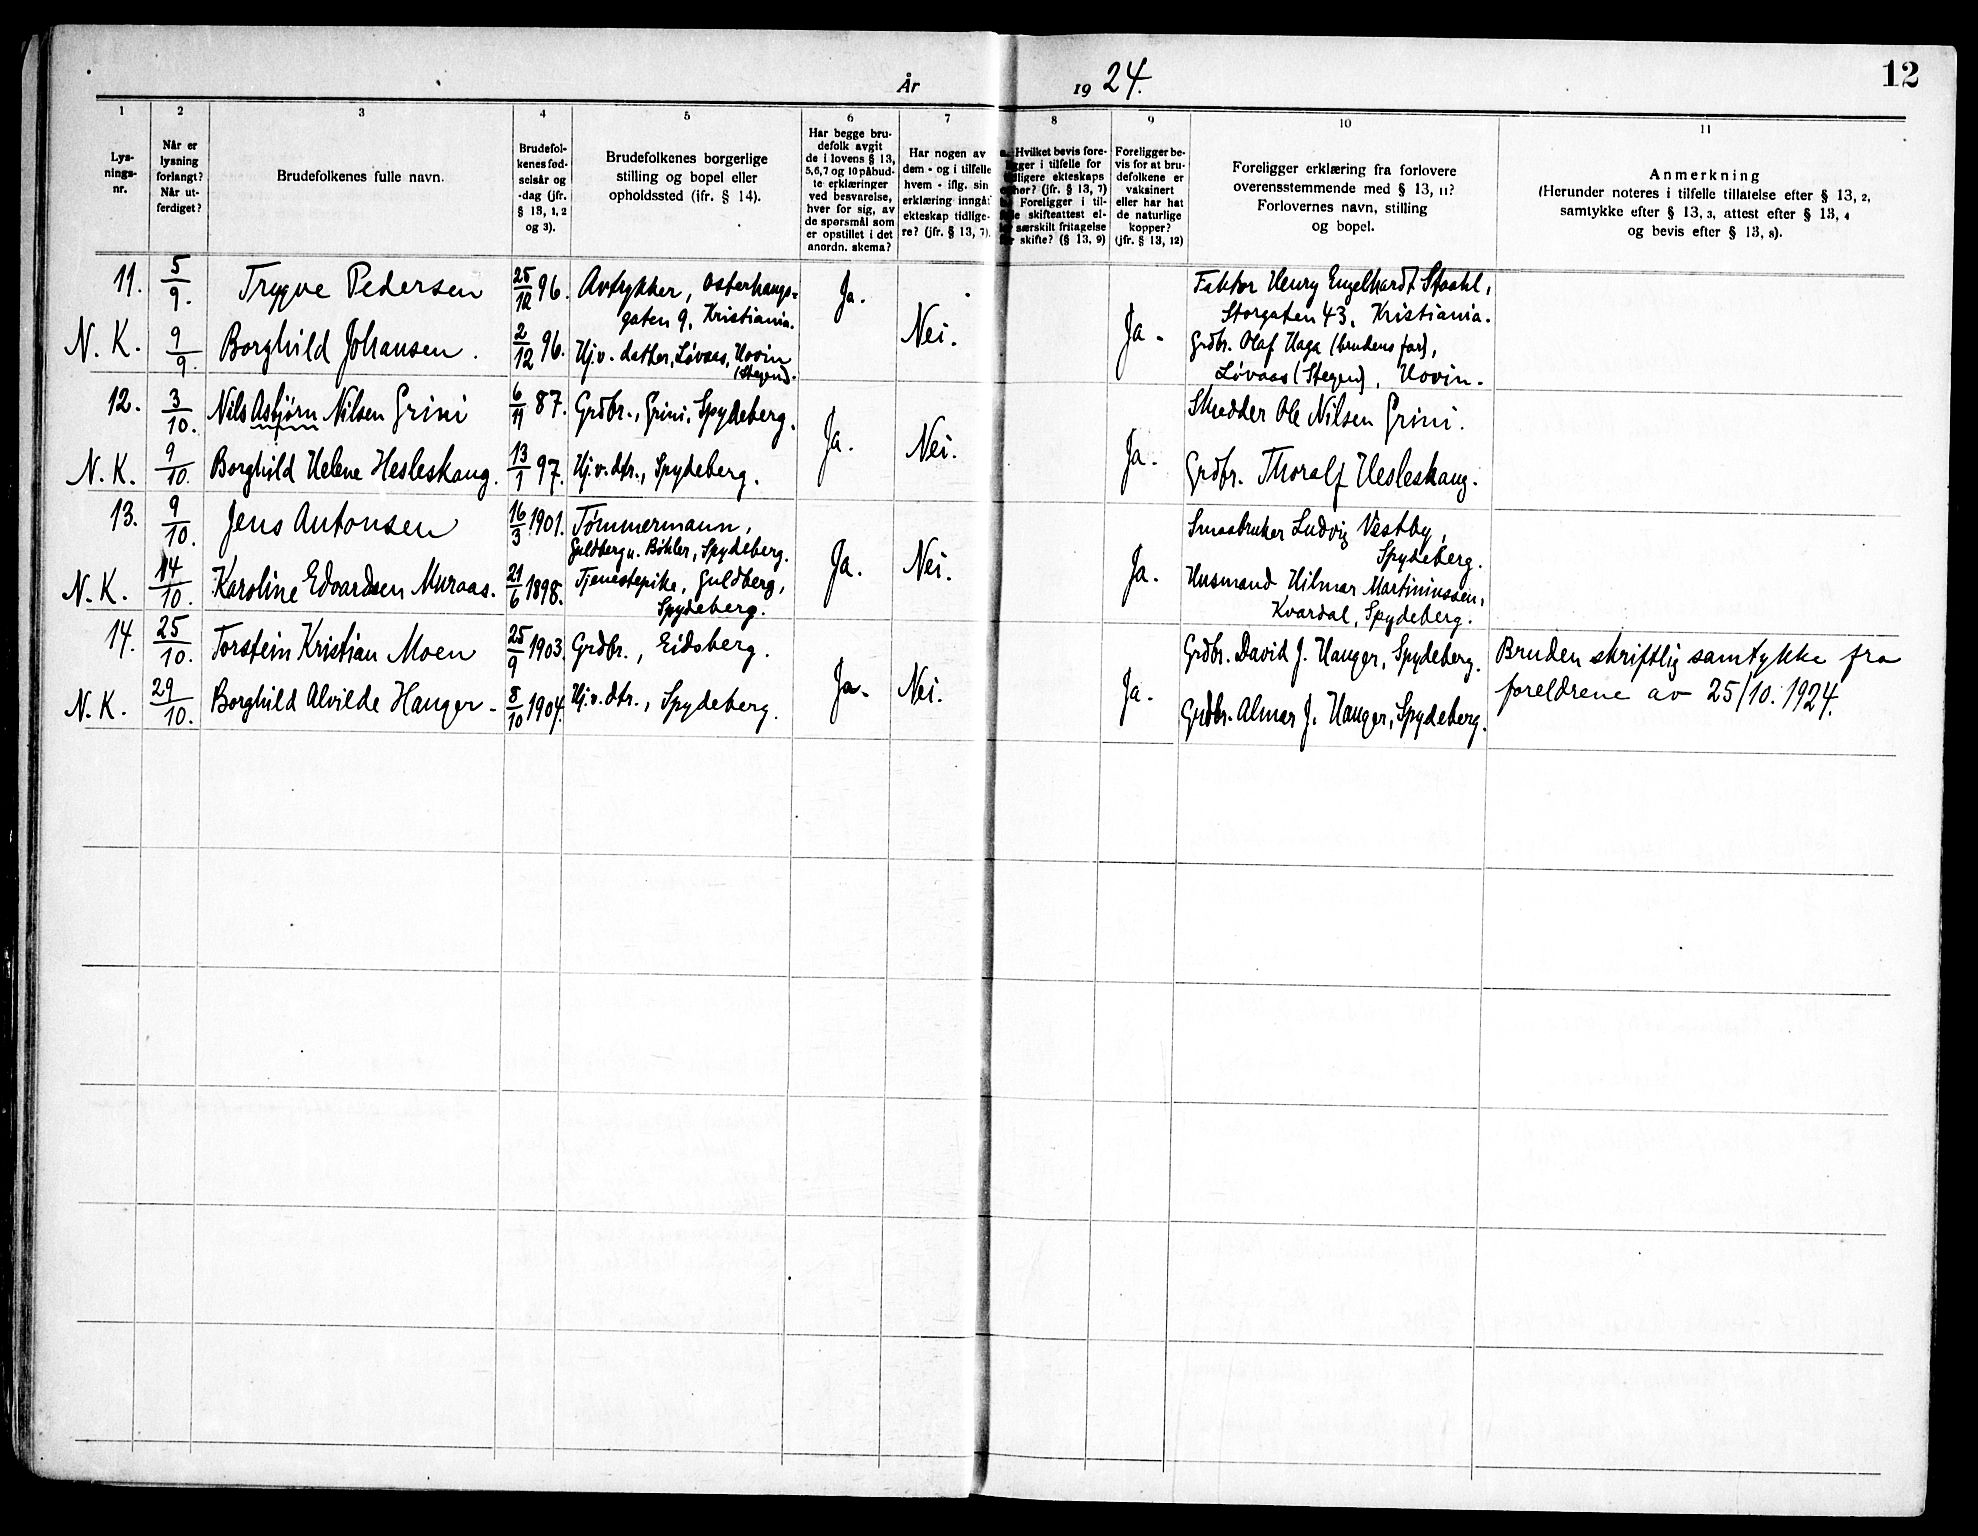 År 1924.
12
1
2
3
4
5
6
7
8
9
10
11
Lys-
nings-
nr.
Når er
lysning
forlangt?
Når ut-
ferdiget?
Brudefolkenes fulle navn.
Brudefol-
kenes fød-
selsår og
-dag (jfr.
§ 13, 1, 2
og 3).
Brudefolkenes borgerlige
stilling og bopel eller
opholdssted (ifr. § 14).
Har begge bru-
defolk avgit
de i lovens § 13,
5, 6, 7 og 10 påbud-
te erklæringer
ved besvarelse,
hver for sig, av
de spørsmål som
er opstillet i det
anordn. skema?
Har nogen av
dem - og i tilfelle
hvem - iflg. sin
erklæring inngåt
ekteskap tidlige-
re? (jfr. § 13, 7).
Hvilket bevis fore-
ligger i tilfelle for
tidligere ekteskaps
ophør? (jfr. § 13, 7)
Foreligger i til-
felle skifteattest el-
ler særskilt fritagelse
for skifte? (§ 13, 9)
Foreligger be-
vis for at bru-
defolkene er
vaksinert
eller har hat
de naturlige
kopper?
(jfr. § 13, 12)
Foreligger erklæring fra forlovere
overensstemmende med § 13, 11?
Forlovernes navn, stilling
og bopel.
Anmerkning
(Herunder noteres i tilfelle tillatelse efter § 13, 2,
samtykke efter § 13, 3, attest efter § 13, 4
og bevis efter § 13, 8).
11. 5/9. Trygve Pedersen 25/12 96. Avtrykker, Osterhaugs-
gaten 9, Kristiania.
Ja.
Faktor Henry Engelhardt Staahl,
Storgaten 43, Kristiania.
N. K. 9/9. Borghild Johansen. 2/12 96. Hj.v. datter, Løvaas, Hovin
(Stegen).
Nei.
Ja.
Grdbr. Olaf Haga (brudens far),
Løvaas (Stegen), Hovin.
12. 3/10. Nils Asbjørn Nilsen Grini 6/11 87. Grdbr., Grini, Spydeberg.
Ja. Nei. Ja.
Skredder Ole Nilsen Grini.
N. K. 9/10. Borghild Helene Hesleskaug. 13/1 97. Hj.v.dtr., Spydeberg.
Grdbr. Thoralf Hesleskaug.
13. 9/10. Jens Antonsen 16/3 1901. Tømmermann,
Guldberg u. Bøhler, Spydeberg.
Ja. Nei. Ja.
Smaabruker Ludvig Vestby,
Spydeberg.
N. K. 14/10. Karoline Edvardsen Muraas. 21/6 1898. Tjenestepike, Guldberg,
Spydeberg.
Husmand Hilmar Martiniussen,
Kvardal, Spydeberg.
14. 25/10. Torstein Kristian Moen 25/9 1903. Grdbr., Eidsberg.
Ja. Nei. Ja.
Grdbr. David J. Hauger, Spydeberg.
Bruden skriftlig samtykke fra
N. K. 29/10. Borghild Alvilde Hauger. 8/10 1904. Hj.v.dtr., Spydeberg.
Grdbr. Almar J. Hauger, Spydeberg.
foreldrene av 25/10. 1924.